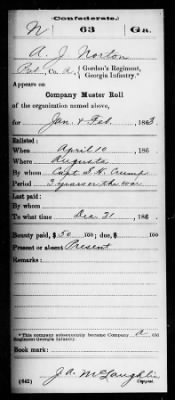 Confederate.
N 63 Ga.
A. J. Norton
Pvt., Co. A., Gordon's Regiment,
Georgia Infantry.*
Appears on
Company Muster Roll
of the organization named above,
for Jan. & Feb., 1863.
Enlisted:
When April 10, 186
Where Augusta
By whom Capt. S. H. Crump
Period 3 years or the war
Last paid:
By whom
To what time Dec. 31, 186 .
Bounty paid, $50 100; due, $ 100
Present or absent Present
Remarks:
*This company subsequently became Company A, 63
Regiment Georgia Infantry.
Book mark:
J. A. McLaughlin
(642) Copyist.